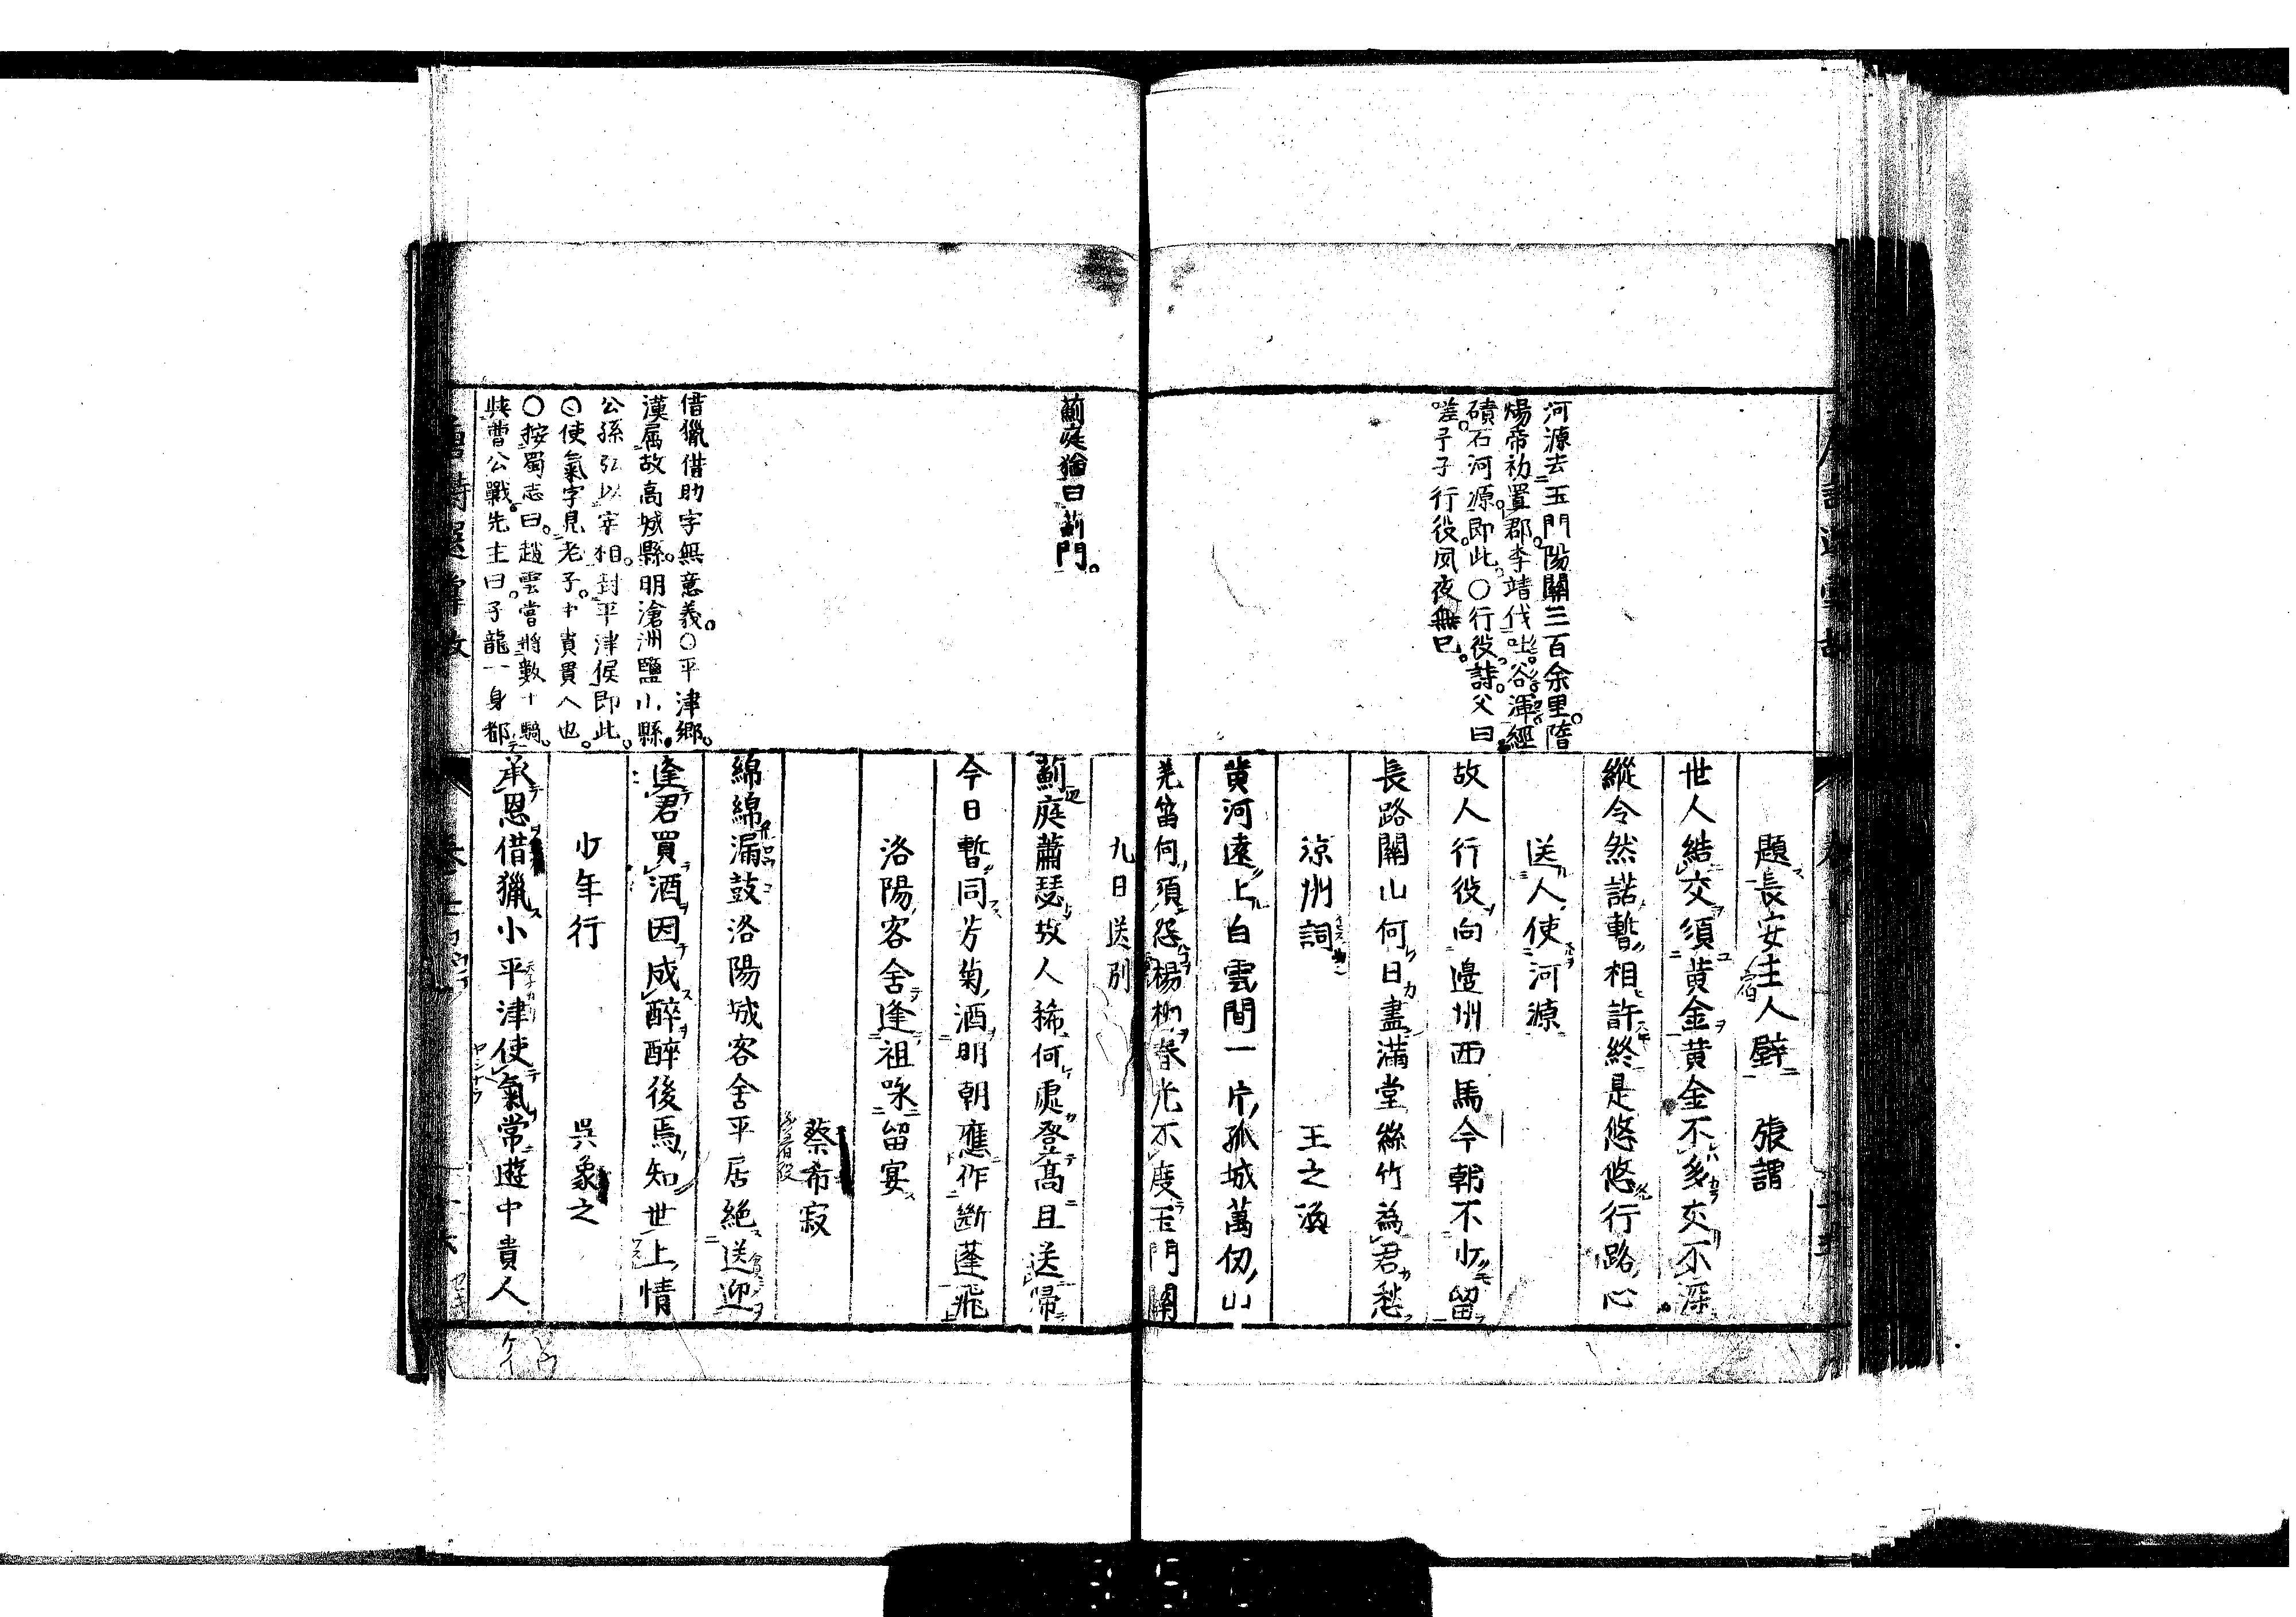 河源去玉門陽關三百余里。隋
煬帝初置郡。李靖伐吐谷渾經
磧石河源。即此。○行役。詩父曰
嗟。予子行役。夙夜無已。
題長安主人壁　張謂
世人結交須黄金黄金不多交不深
縱令然諾暫相許終是悠悠行路心
送人使河源
故人行役向邊州西馬今朝不少留
長路關山何日盡滿堂絲竹為君愁
涼州詞　王之渙
黄河遠上白雲間一片孤城萬仞山
羌笛何須怨楊柳春光不度玉門關
薊庭猶曰薊門。
九日送別
薊庭蕭瑟故人稀何處登高且送帰
今日暫同芳菊酒明朝應作斷蓬飛
洛陽客舍逢祖咏留宴
蔡希寂
綿綿漏鼓洛陽城客舍平居絶送迎
逢君買酒因成醉醉後焉知世上情
少年行　吳象之
承恩借獵小平津使氣常遊中貴人
借獵借助字無意義。○平津鄉。
漢屬故高城縣。明滄洲鹽小縣。
公孫弘以宰相。封平津侯即此。
○使氣字見老子。中貴貴人也。
○按蜀志曰。趙雲嘗將數十騎。
與曹公戰。先主曰。子龍一身都